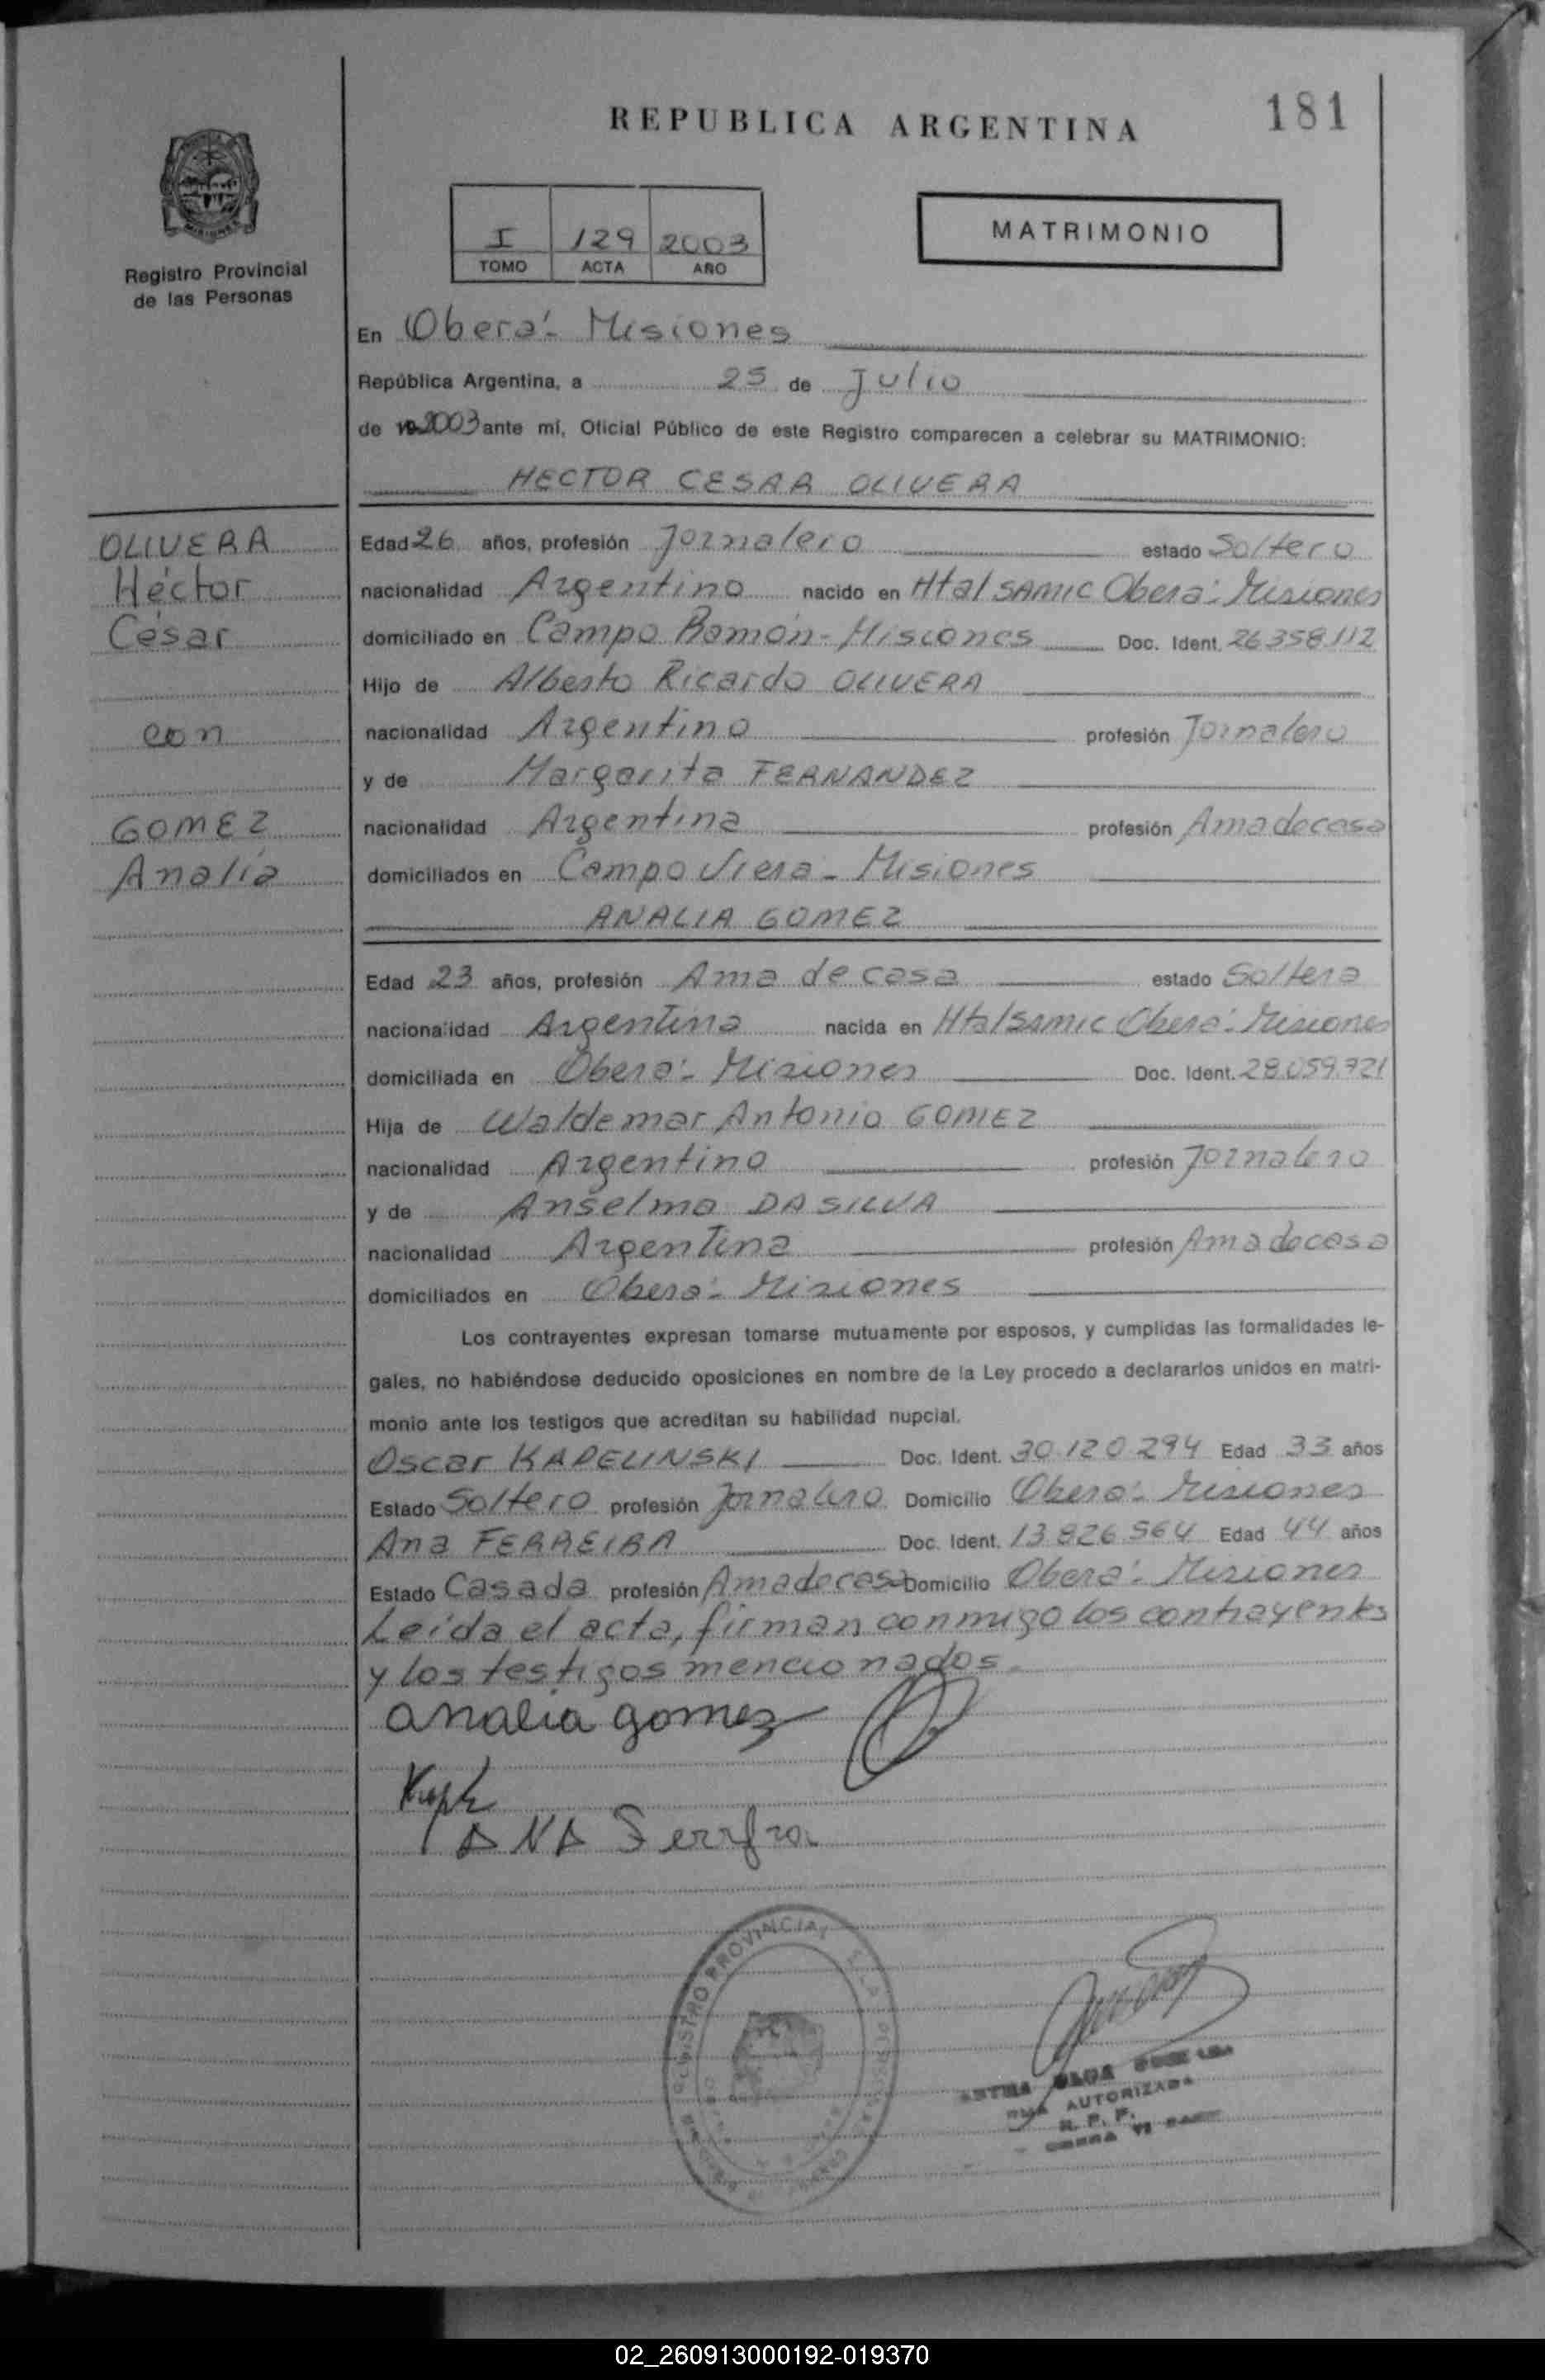 REPUBLICA ARGENTINA
181
I 129 2003
TOMO ACTA AÑO
MATRIMONIO
Registro Provincial
de las Personas
En Oberá - Misiones
República Argentina, a 25 de Julio
de 2003 ante mí, Oficial Público de este Registro comparecen a celebrar su MATRIMONIO:
HECTOR CESAR OLIVERA
OLIVERA
Héctor
César
con
GOMEZ
Analía
Edad 26 años, profesión Jornalero estado Soltero
nacionalidad Argentino nacido en Htal SAMIC Oberá - Misiones
domiciliado en Campo Ramón - Misiones Doc. Ident. 26.358.112
Hijo de Alberto Ricardo OLIVERA
nacionalidad Argentino profesión Jornalero
y de Margarita FERNANDEZ
nacionalidad Argentina profesión Ama de casa
domiciliados en Campo Viera - Misiones
ANALIA GOMEZ
Edad 23 años, profesión Ama de casa estado Soltera
nacionalidad Argentina nacida en Htal Samic Oberá - Misiones
domiciliada en Oberá - Misiones Doc. Ident. 28.059.721
Hija de Waldemar Antonio GOMEZ
nacionalidad Argentino profesión Jornalero
y de Anselma DA SILVA
nacionalidad Argentina profesión Ama de casa
domiciliados en Oberá - Misiones
Los contrayentes expresan tomarse mutuamente por esposos, y cumplidas las formalidades le-
gales, no habiéndose deducido oposiciones en nombre de la Ley procedo a declararlos unidos en matri-
monio ante los testigos que acreditan su habilidad nupcial.
Oscar KAPELINSKI Doc. Ident. 30.120.294 Edad 33 años
Estado Soltero profesión Jornalero Domicilio Oberá - Misiones
Ana FERREIRA Doc. Ident. 13.826.564 Edad 44 años
Estado Casada profesión Ama de casa Domicilio Oberá - Misiones
Leída el acta, firman conmigo los contrayentes
y los testigos mencionados.
analia gomez
ANA
REGISTRO PROVINCIAL
AUTORIZADA
R. P. P.
02_260913000192-019370